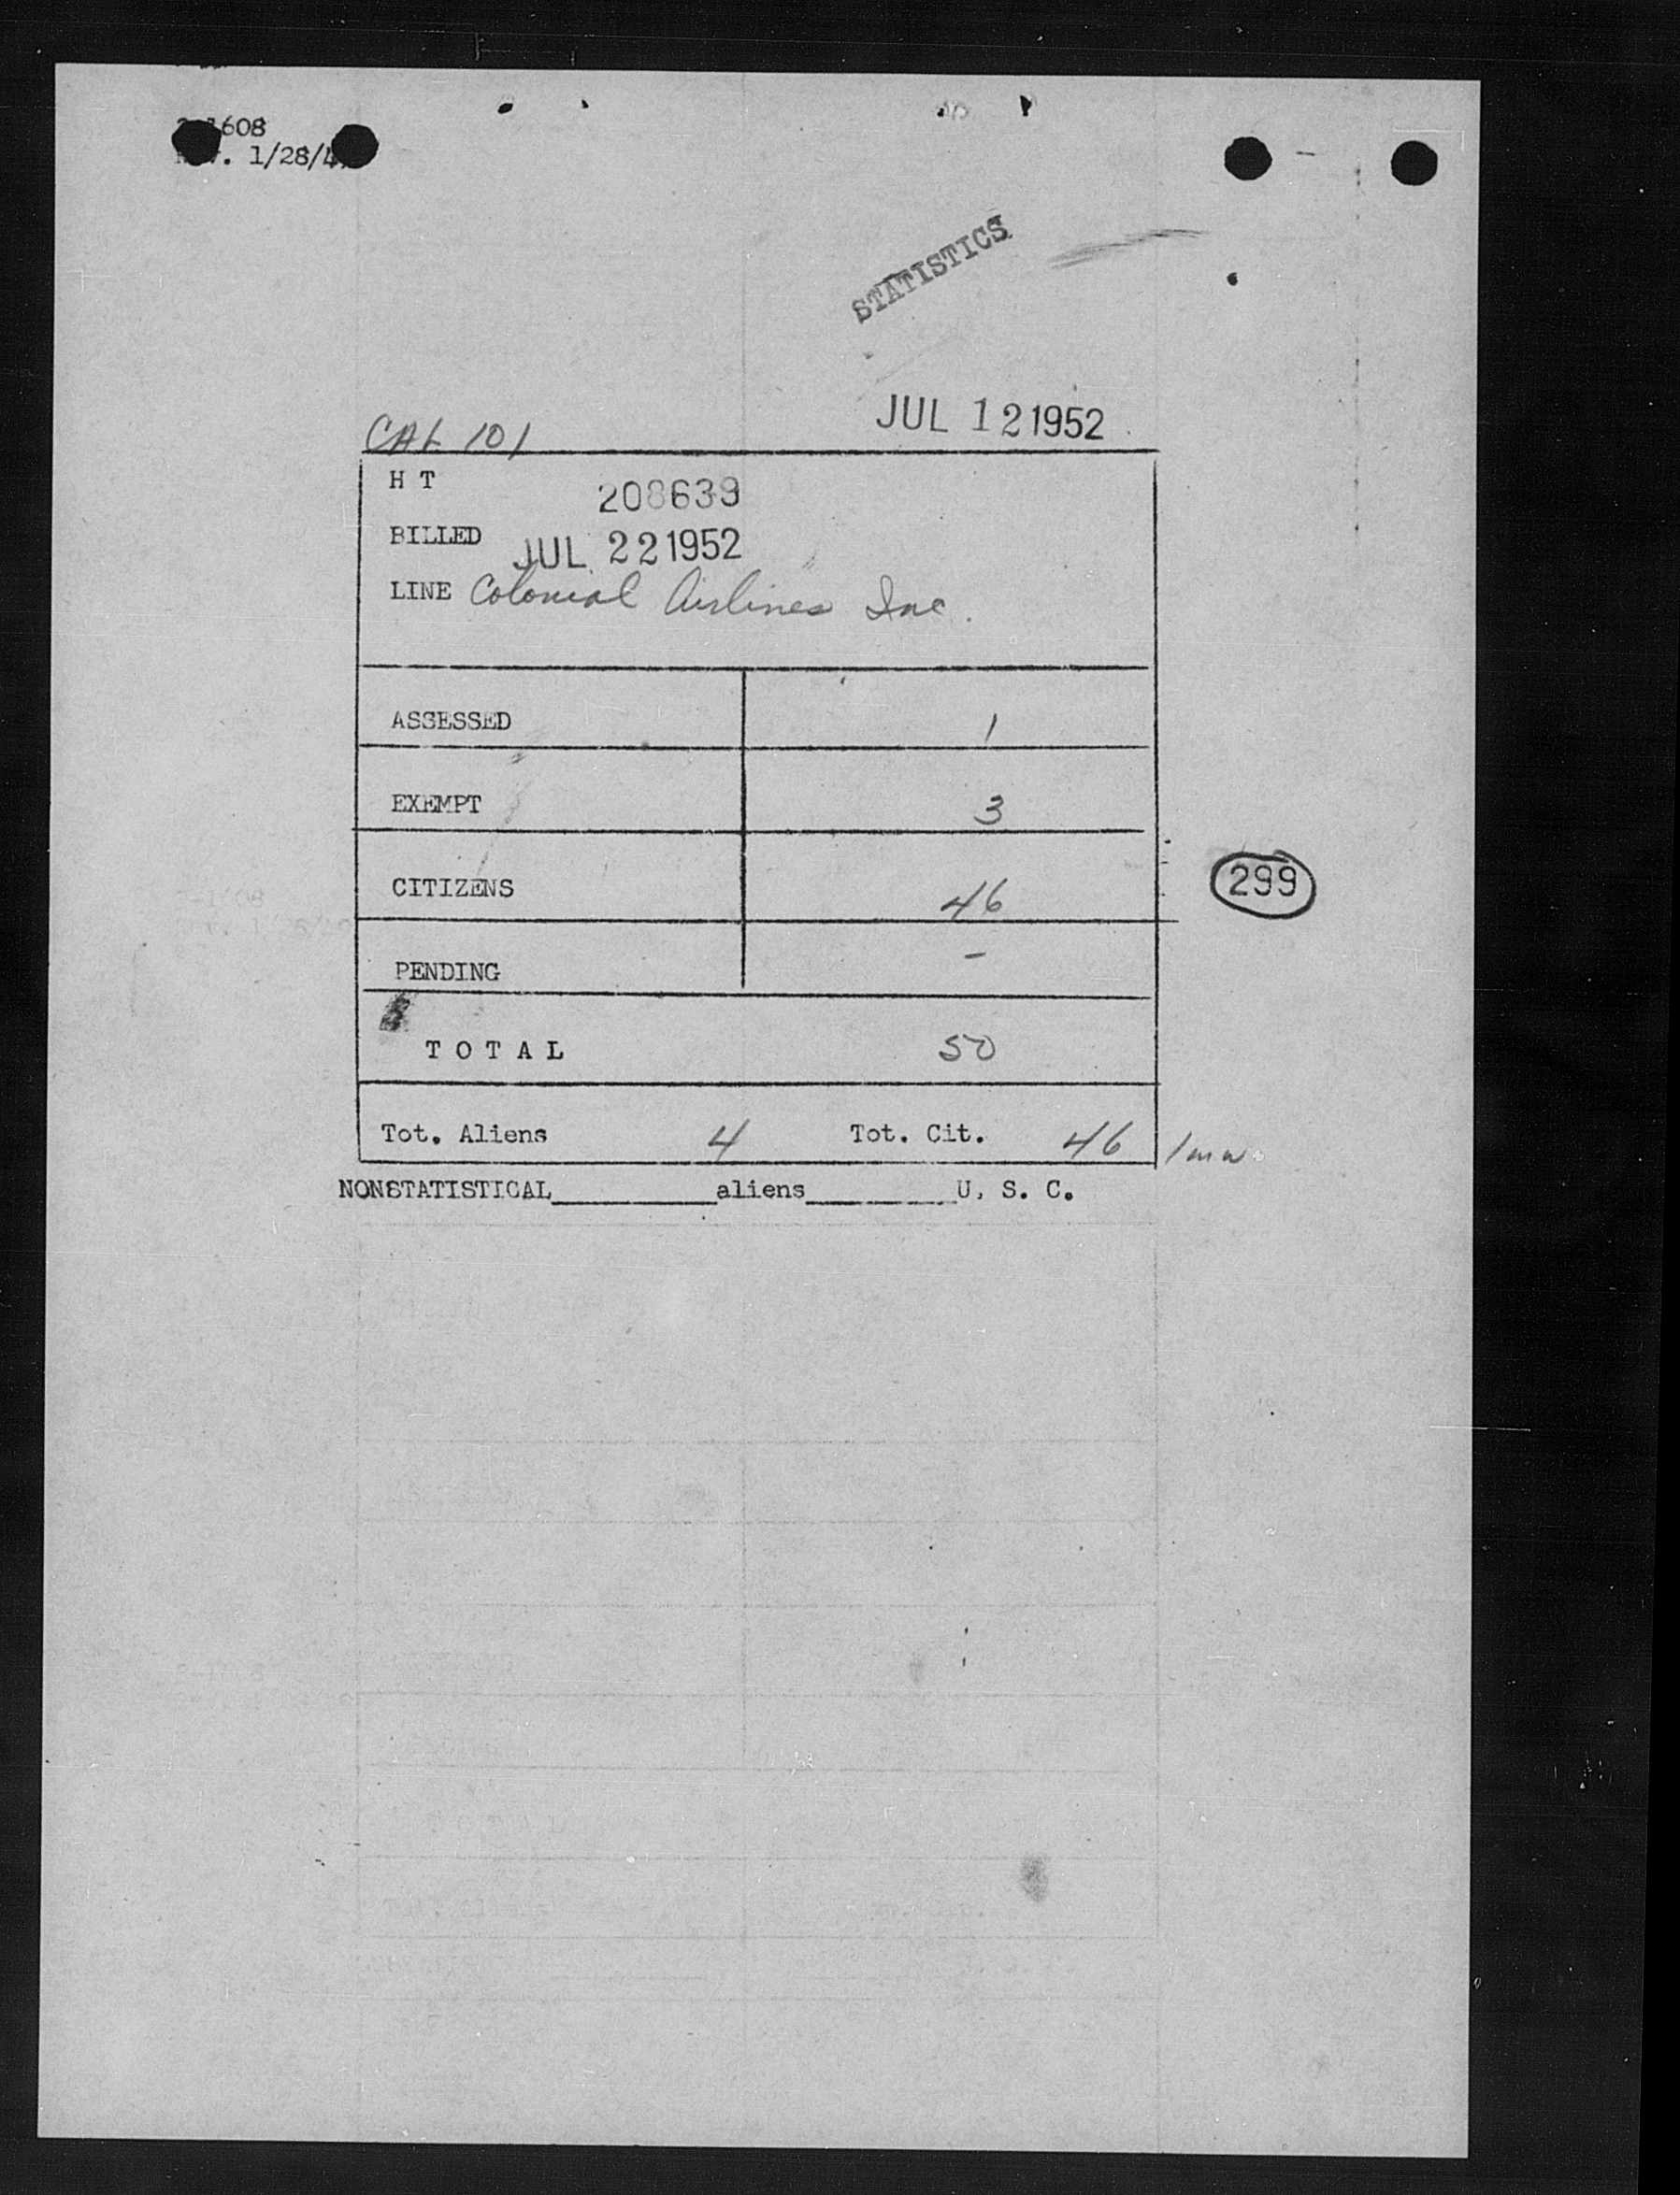 1608
1/28/
STATISTICS
JUL 12 1952
CAL 101
H T 208639
BILLED JUL 22 1952
LINE Colonial Airlines Inc.
ASSESSED 1
EXEMPT 3
CITIZENS 46
299
PENDING -
TOTAL 50
Tot. Aliens 4 Tot. Cit. 46
NONSTATISTICAL__________aliens__________U. S. C.